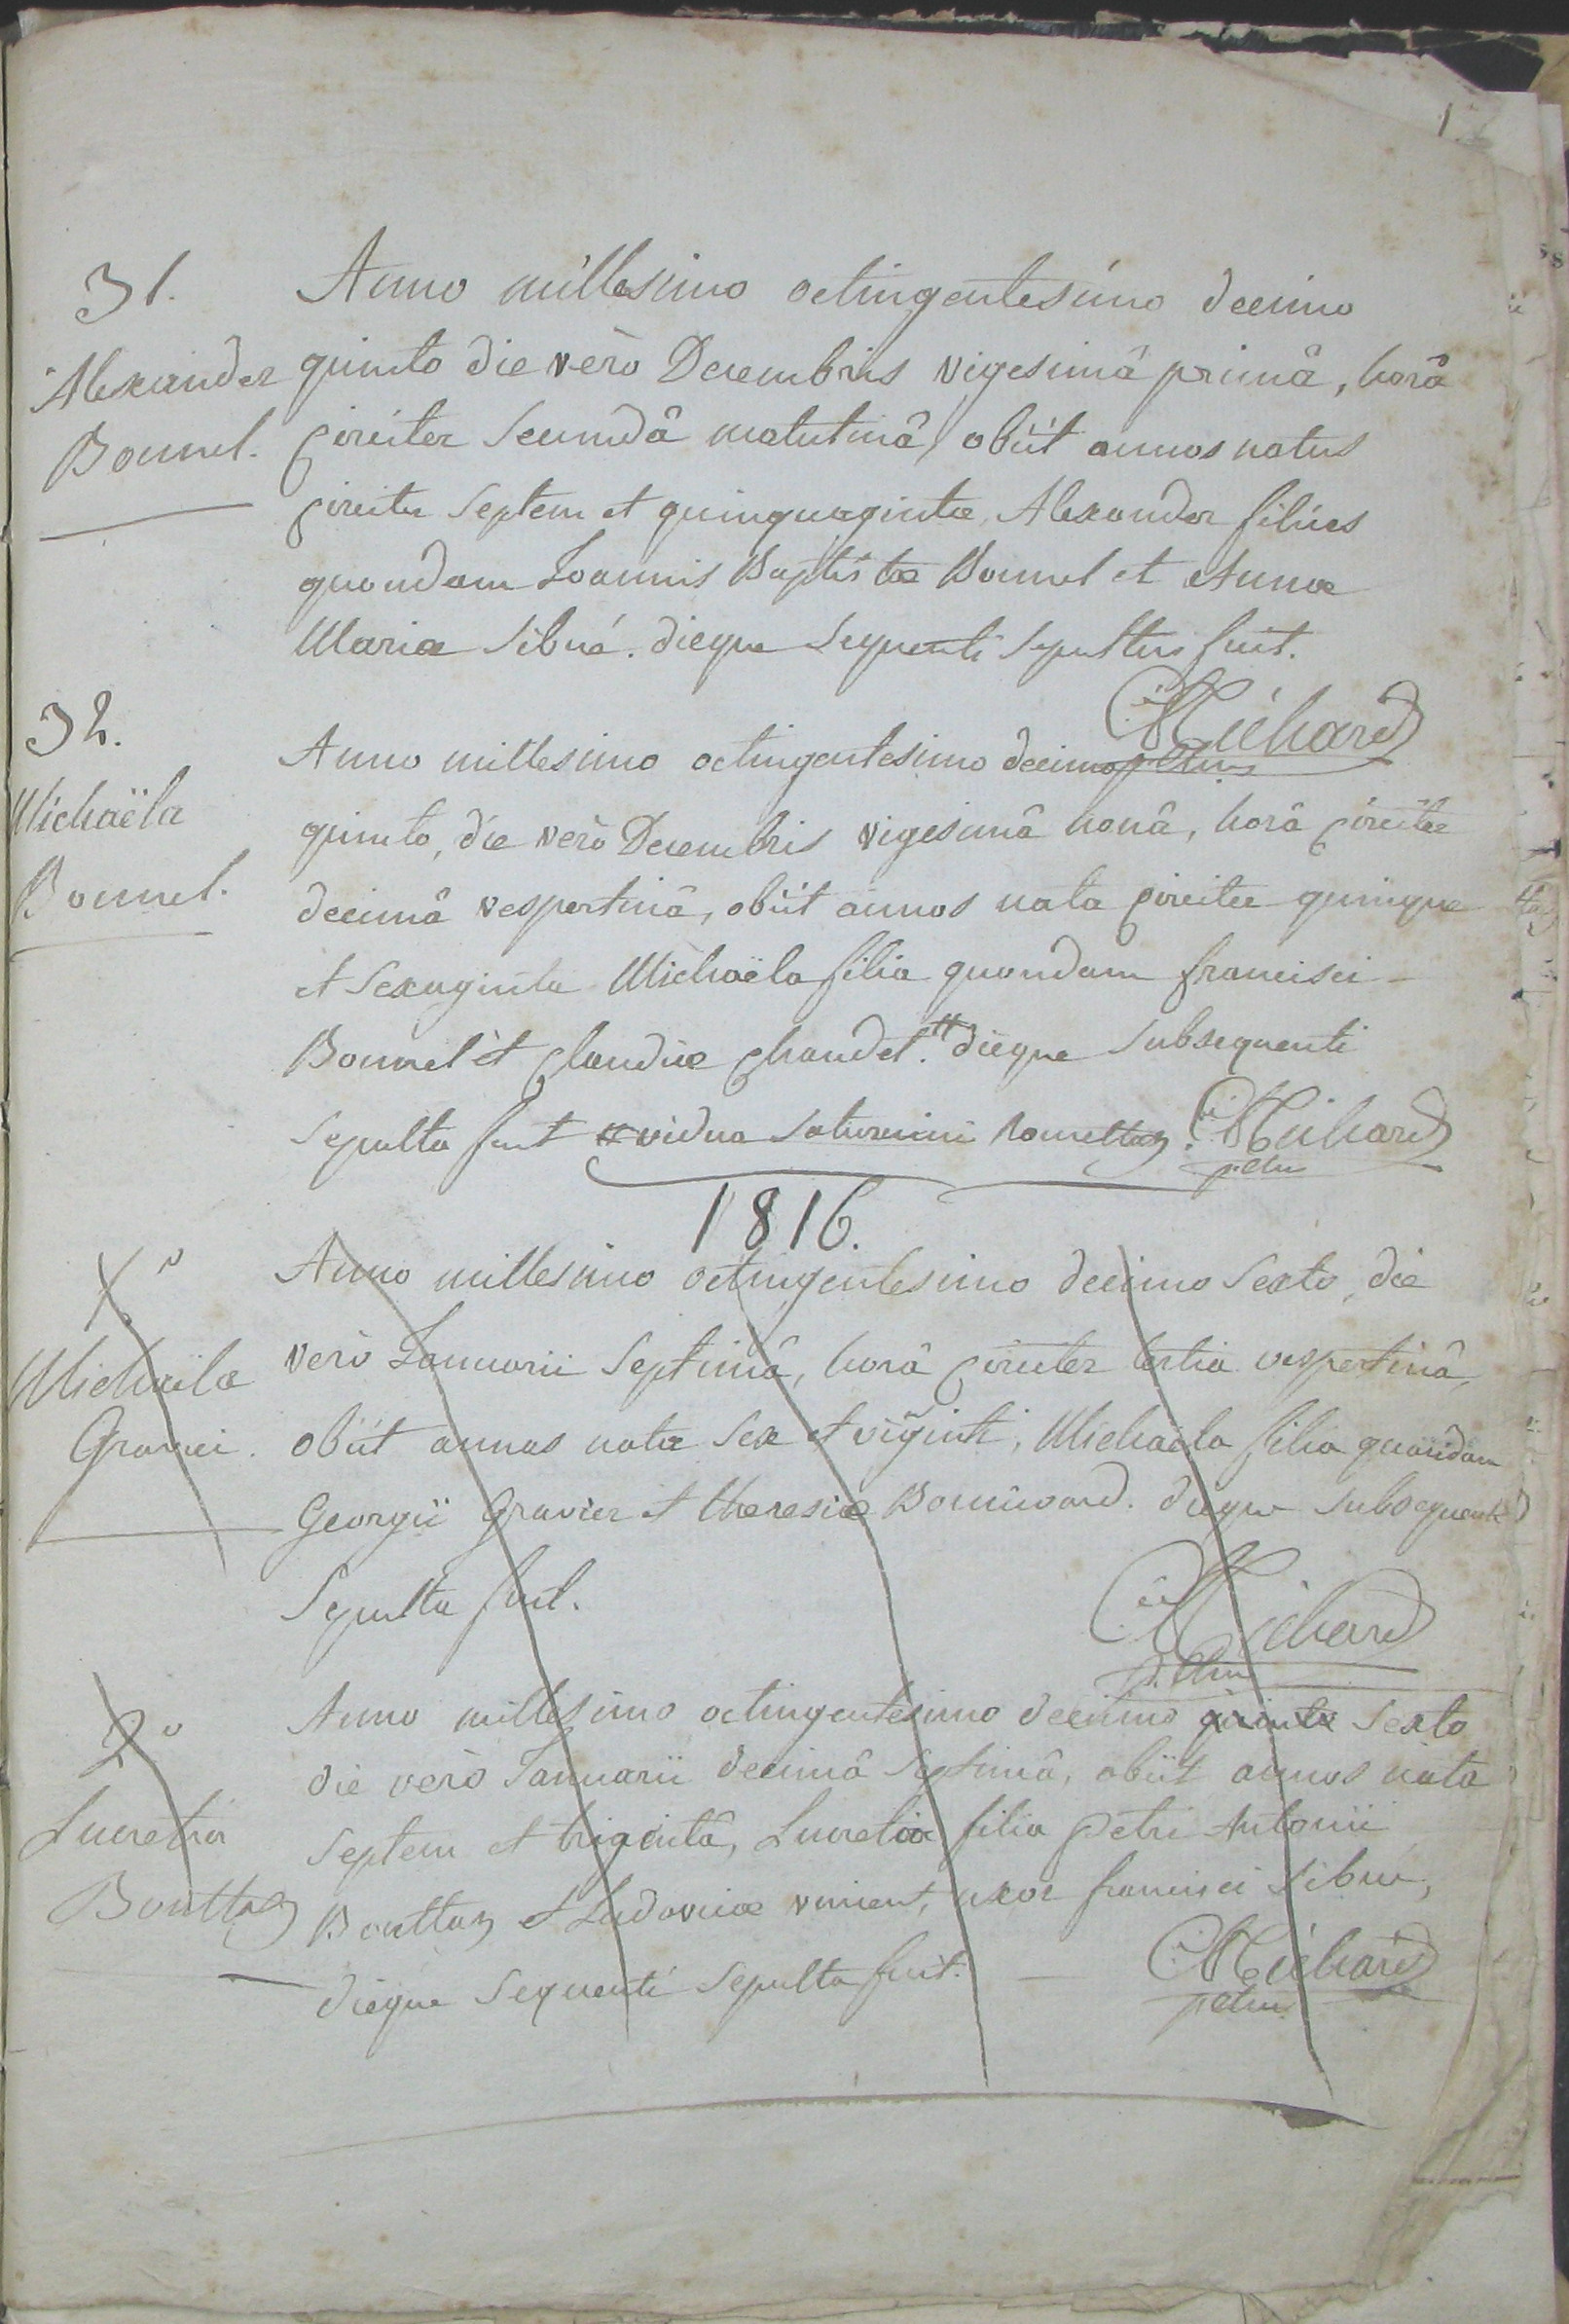 31.
Alexander
Bonnel.
Anno millesimo octingentesimo decimo
quinto die verò Decembris vigesimâ primâ, horâ
circiter secundâ matutinâ, obiit annos natus
circiter septem et quinquaginta, Alexander filius
quondam Joannis Baptistæ Bonnel et Annæ
Mariæ Sibué. dieque sequenti sepultus fuit.
Michard
32.
Michaëla
Bonnel.
Anno millesimo octingentesimo decimo
quinto, die verò Decembris vigesimâ nonâ, horâ circiter
decimâ vespertinâ, obiit annos nata circiter quinque
et sexaginta Michaëla filia quondam francisci
Bonnel et Claudiæ Chaudet. # dieque subsequenti
sepulta fuit # vidua saturnini Romettaz. Michard
1816.
1º
Michaëla
Gravier.
Anno millesimo octingentesimo decimo sexto, die
verò Januarii septimâ, horâ circiter tertia vespertinâ,
obiit annos nata sex et viginti, Michaëla filia quondam
Georgii Gravier et theresiæ Bonnivard. dieque subsequenti
sepulta fuit.
Michard
2º
Lucretia
Bouttaz
Anno millesimo octingentesimo decimo quinto sexto
die verò Januarii decimâ septimâ, obiit annos nata
septem et triginta, Lucretia filia petri Antonii
Bouttaz et Ludovicæ vincent, uxor francisci Sibué,
dieque sequenti sepulta fuit. Michard